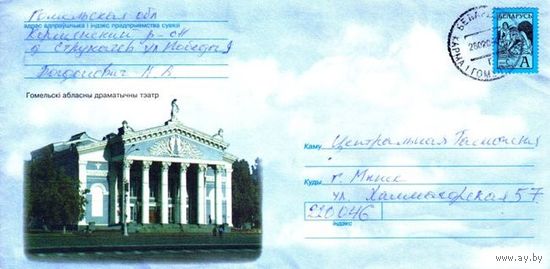 Гомельская обл
адрас адпраўшчыка і індэкс прадпрыемства сувязі
Кормянский р-он
д Струкачев ул Победы 9
Н. В.
Гомельскі абласны драматычны тэатр
БЕЛАРУСЬ
A
КАРМА ГОМ
Каму Центральная Таможня
Куды г. Минск
ул. 57
220046
індэкс
www.ay.by